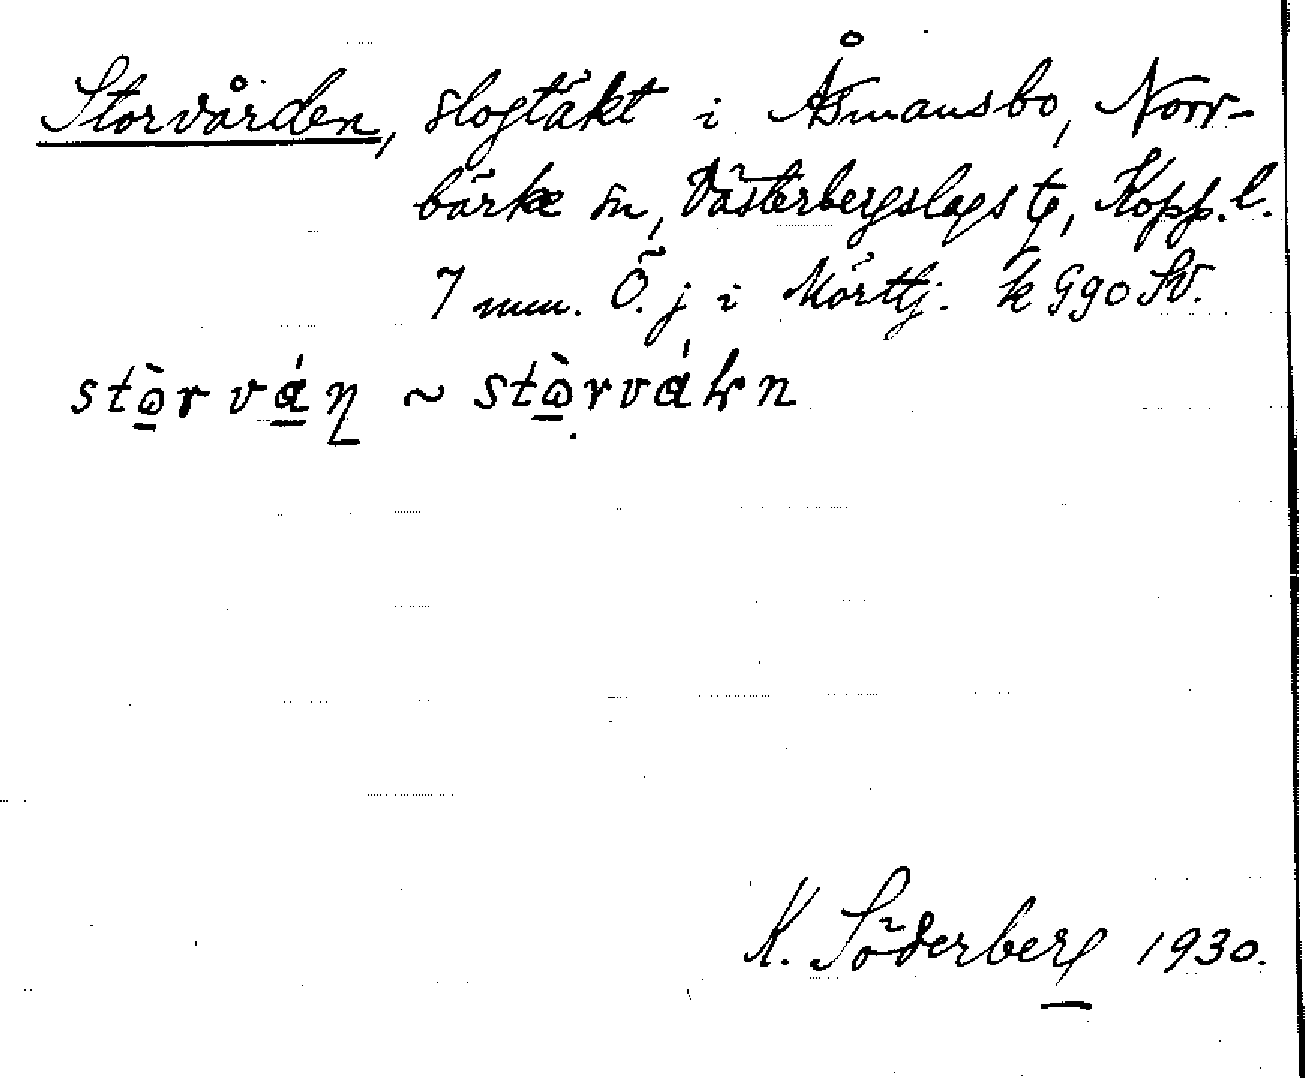 Storvården, slogtäkt i Åsmansbo, Norr-
bärke sn, Västerbergslags tg, Kopp. l.
7 mm. Ö. j i Mörttj. k 990 SV.
stòrván ~ stòrvákn
K. Söderberg 1930.